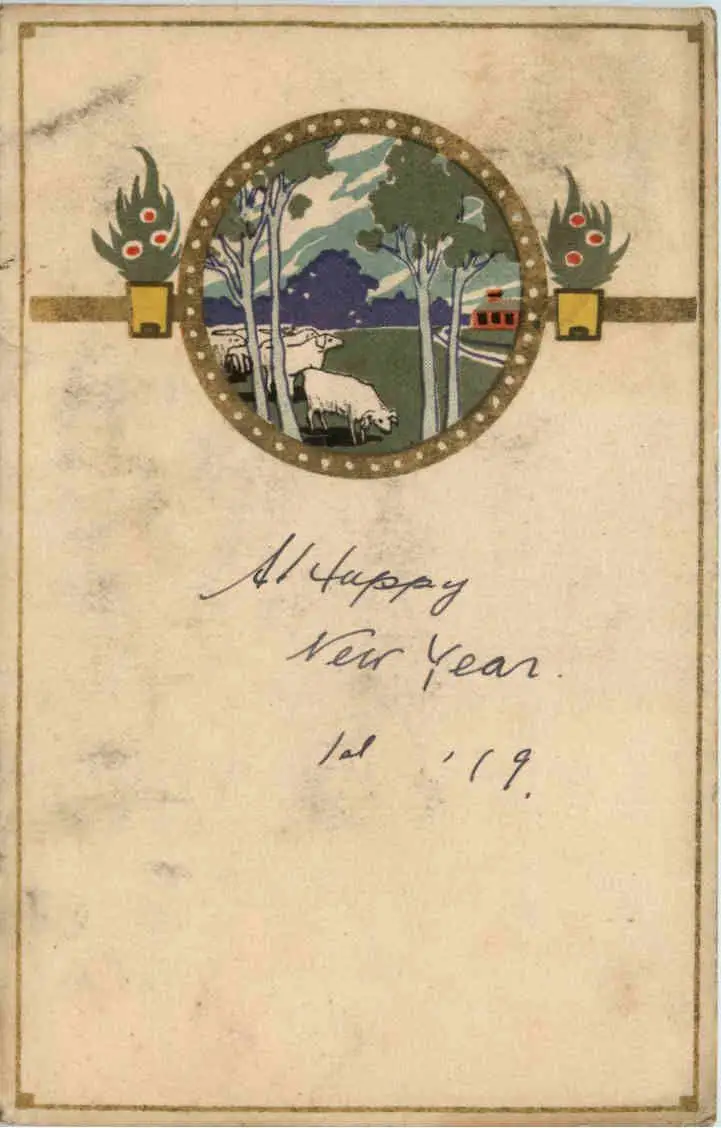 A Happy
New Year.
1st '19.